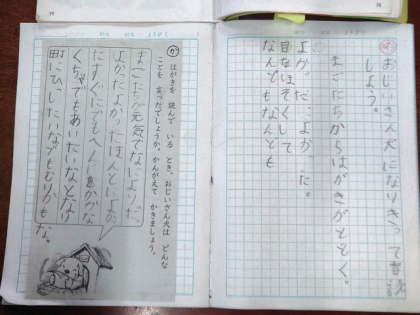 おじいさん犬になりきって音読
しよう。
まごたちからはがきがとどく。
よかった、よかった。
目をほそくして
なんどもなんども
はがきを 読んで いる とき、おじいさん犬は どんな
ことを 言ったでしょうか。かんがえて かきましょう。
まごたちが元気でなによりだ。
よかったよかったほんとによかっ
たすぐにでもへんじをかかな
くちゃでもあいたいなとなり
町にひっこしたいなでもむりかも
な。